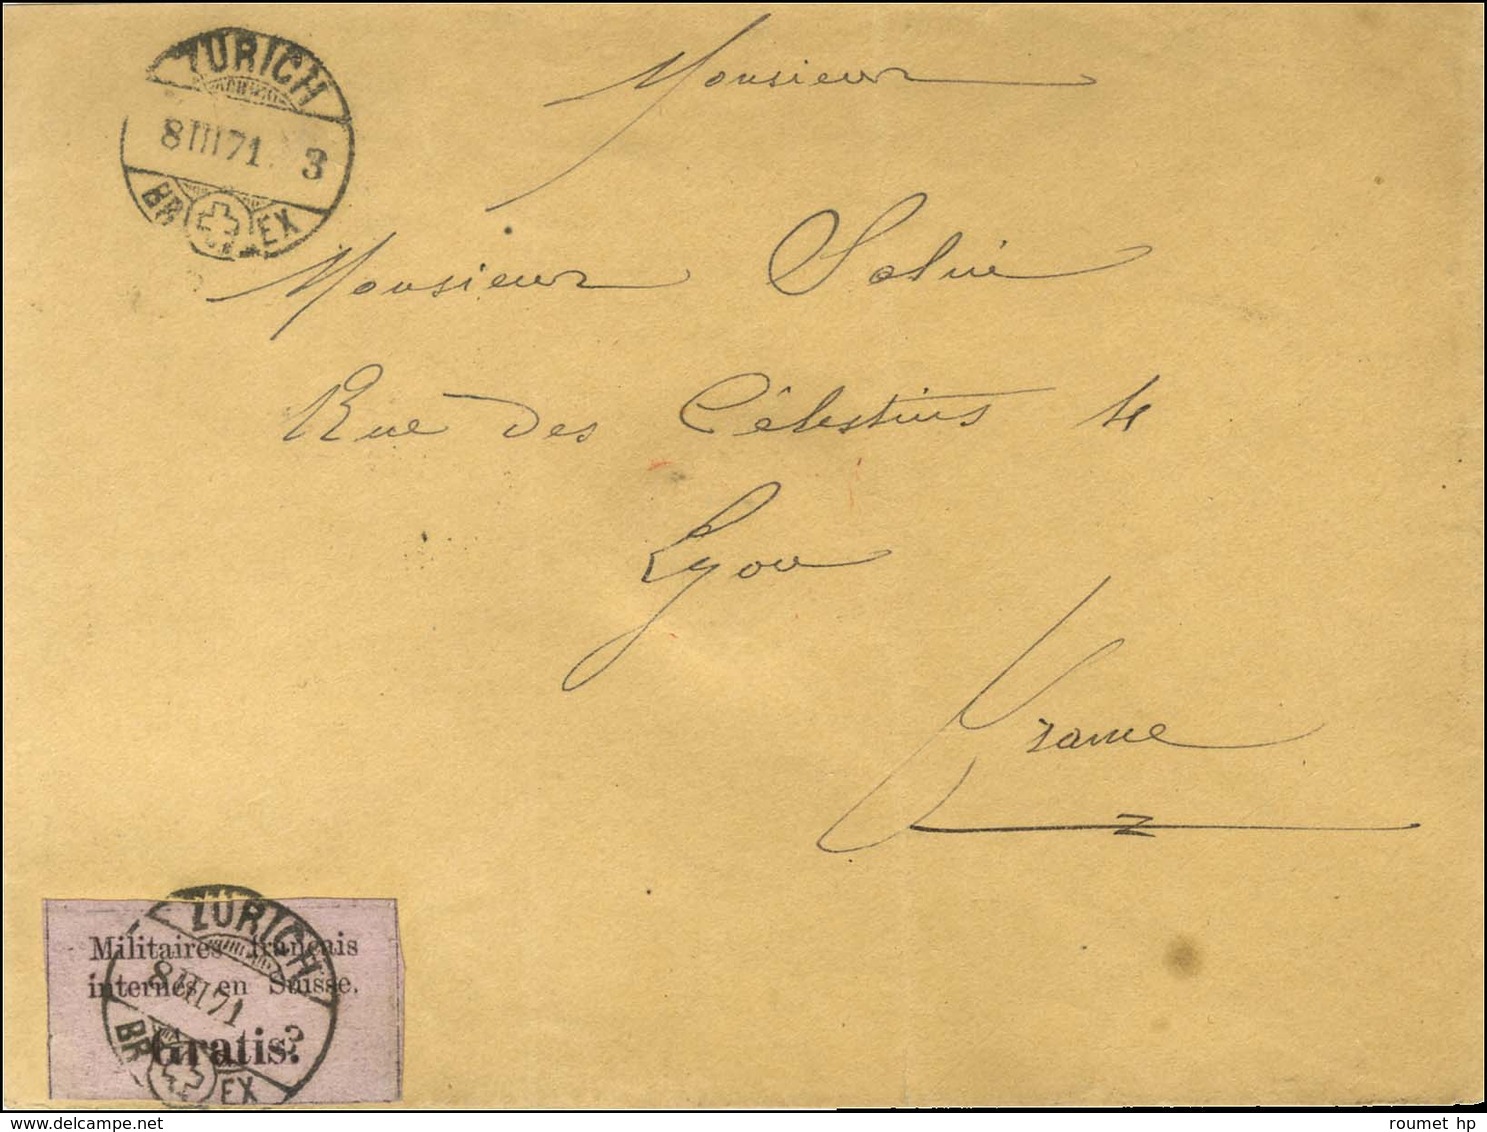 ZURICH
8 III 71 3
BR EX
Monsieur
Monsieur
Rue des Célestins 4
Lyon
France
ZURICH
Militaires français
internés en Suisse.
8 III 71
Gratis.
BR EX
roumet hp